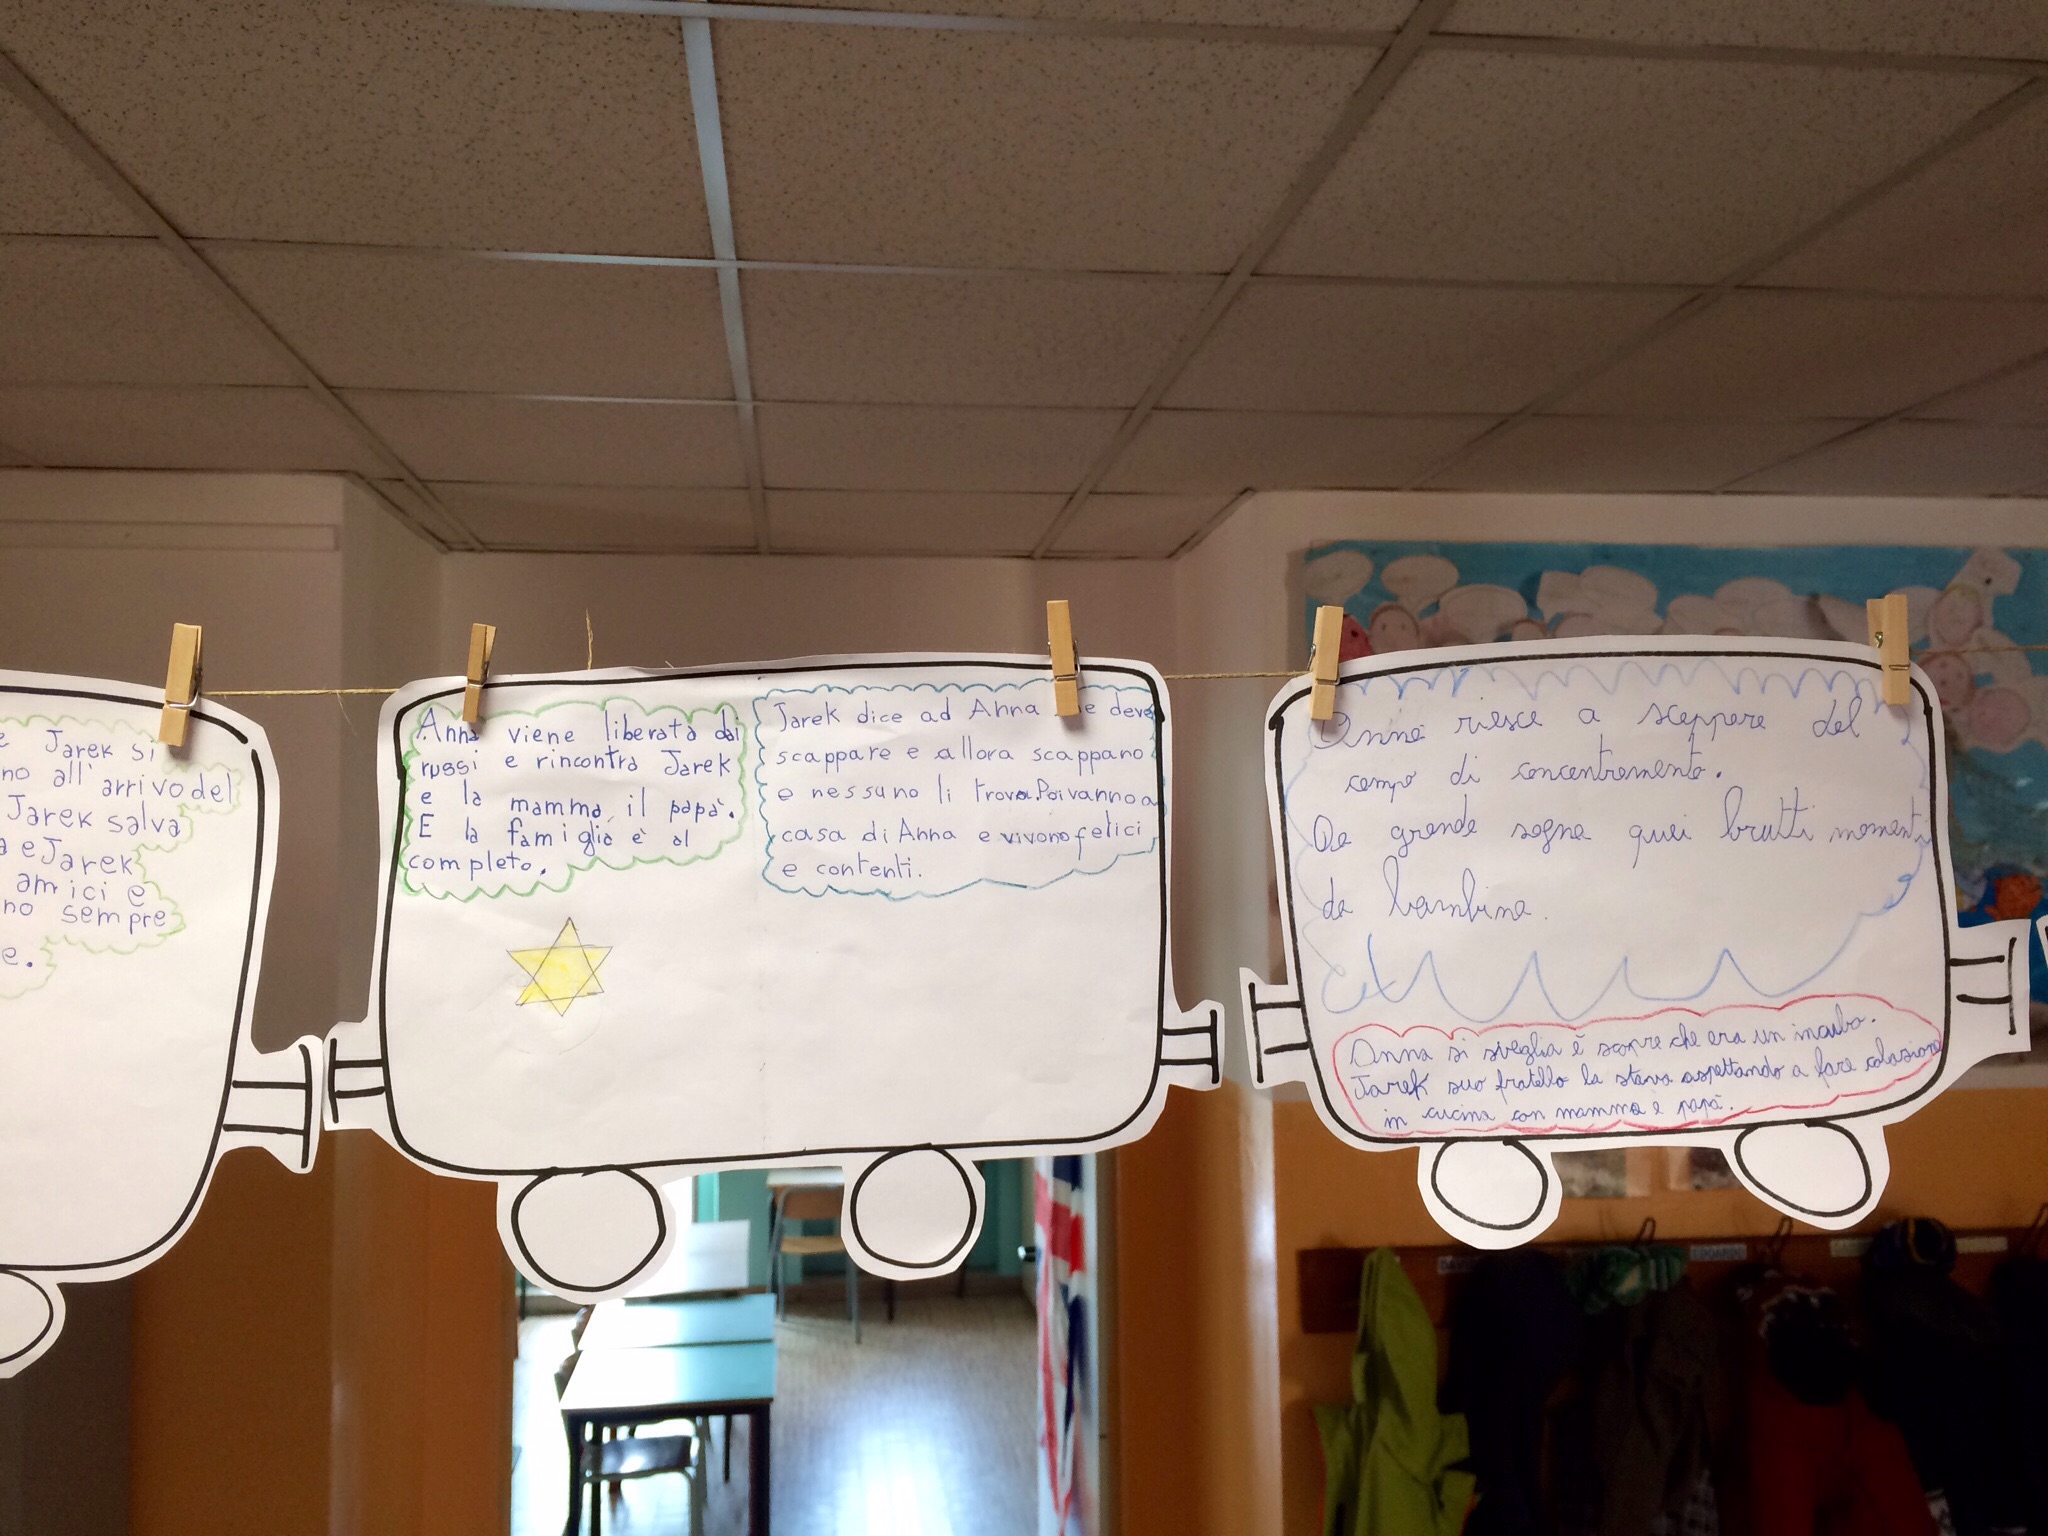 e Jarek si
no all'arrivo del
Jarek salva
a e Jarek
amici e
no sempre
e.
Anna viene liberata dai
russi e rincontra Jarek
e la mamma, il papà.
E la famiglia è al
completo.
Jarek dice ad Anna he deve
scappare e allora scappano
e nessuno li trova. Poi vanno a
casa di Anna e vivono felici
e contenti.
Anna riesce a scappare dal
campo di concentramento.
Da grande sogna quei brutti momenti
da bambina.
Anna si sveglia è scopre che era un incubo.
Jarek suo fratello la stava aspettando a fare colazione
in cucina con mamma e papà.